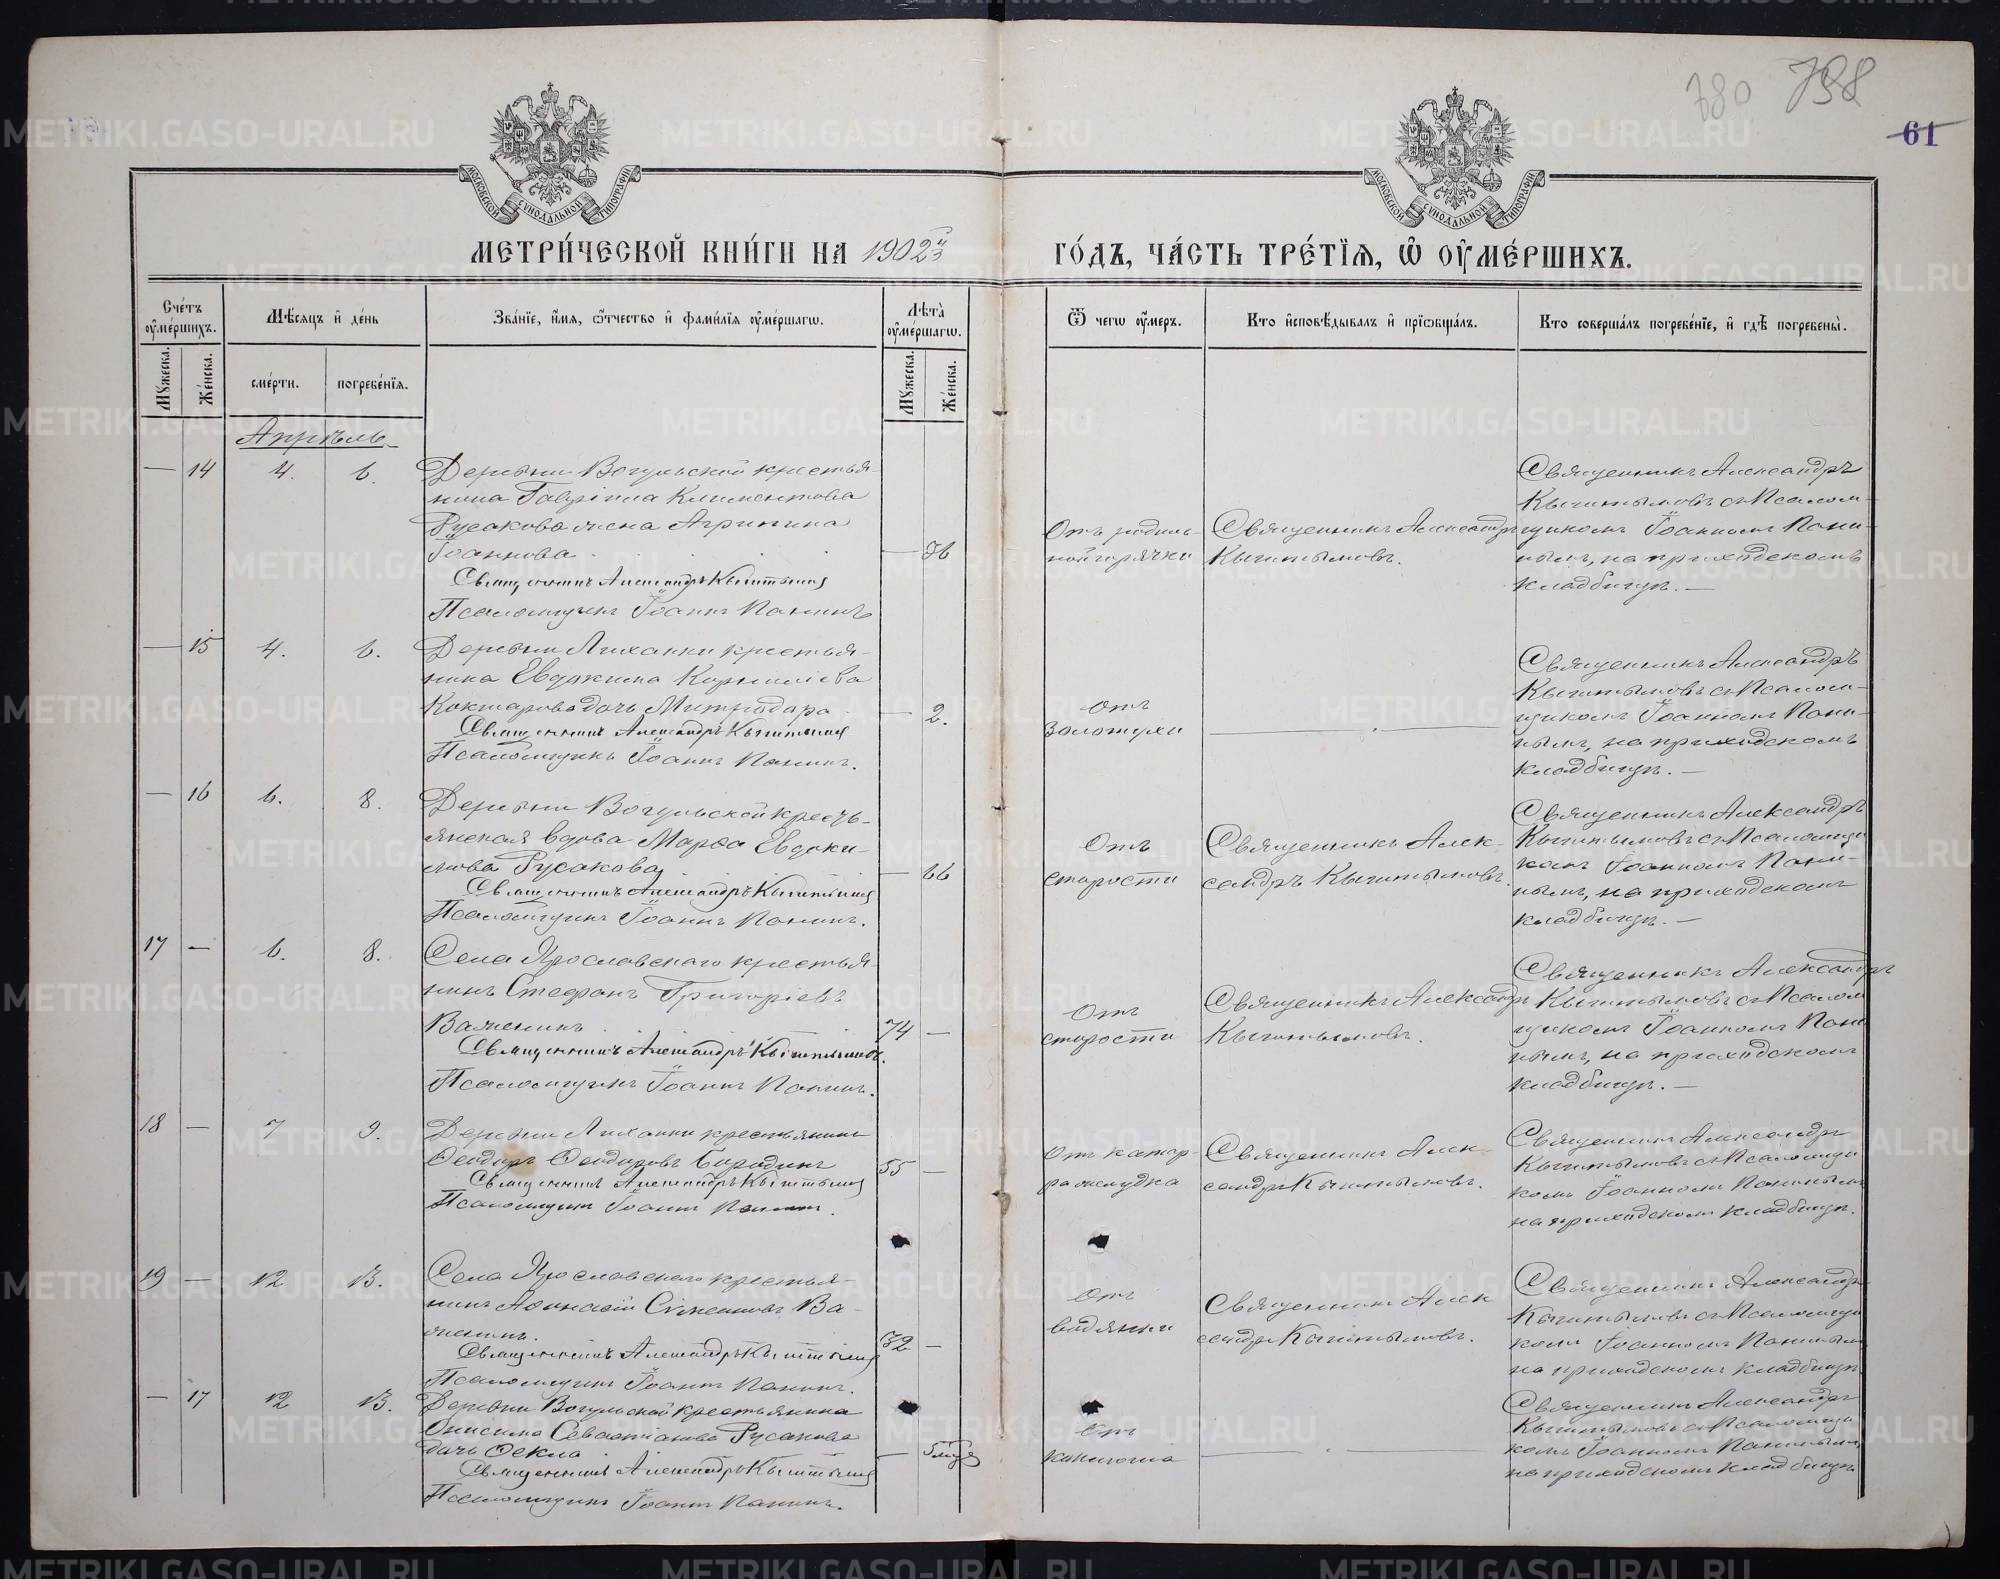 780 798
61
МОСКОВСКОЙ СѴНОДАЛЬНОЙ ТИПОГРАФІИ
МОСКОВСКОЙ СѴНОДАЛЬНОЙ ТИПОГРАФІИ
МЕТРИ́ЧЕСКОЙ КНИ́ГИ НА 1902й
ГО́ДЪ, ЧА́СТЬ ТРЕ́ТІѦ, Ѽ ОУ҆МЕ́РШИХЪ.
Сче́тъ оу҆ме́ршихъ.
Мѣ́сѧцъ и҆ де́нь
Зва́нїе, и҆́мѧ, ѻ҆́тчество и҆ фами́лїѧ оу҆ме́ршагѡ.
Лѣта̀ оу҆ме́ршагѡ.
Ѿ чегѡ̀ оу҆́меръ.
Кто̀ и҆сповѣ́дывалъ и҆ прїѡбща́лъ.
Кто̀ соверша́лъ погребе́нїе, и҆ гдѣ̀ погребены̀.
Мꙋ́жеска.
Же́нска.
сме́рти.
погребе́нїѧ.
Мꙋ́жеска.
Же́нска.
Апрѣль
— 14 4. 6. Деревни Вогульской крестья-
нина Гавріила Климентова
Русакова жена Агрипина
Іоаннова — 36
Священникъ Александръ Кыштымовъ
Псаломщикъ Іоаннъ Панинъ
Отъ родиль-
ной горячки
Священникъ Александръ
Кыштымовъ.
Священникъ Александръ
Кыштымовъ съ Псалом-
щикомъ Іоанномъ Пани-
нымъ, на приходскомъ
кладбищѣ. —
— 15 4. 6. Деревни Лиханки крестья-
нина Евдокима Корниліева
Коктарова дочь Митродора — 2.
Священникъ Александръ Кыштымовъ
Псаломщикъ Іоаннъ Панинъ.
Отъ
золотухи
Священникъ Александръ
Кыштымовъ съ Псалом-
щикомъ Іоанномъ Пани-
нымъ, на приходскомъ
кладбищѣ. —
— 16 6. 8. Деревни Вогульской кресть-
янская вдова Марѳа Евдоки-
мова Русакова — 66
Священникъ Александръ Кыштымовъ
Псаломщикъ Іоаннъ Панинъ.
Отъ
старости
Священникъ Алек-
сандръ Кыштымовъ.
Священникъ Александръ
Кыштымовъ съ Псаломщи
комъ Іоанномъ Пани-
нымъ, на приходскомъ
кладбищѣ. —
17 — 6. 8. Села Ярославскаго крестья-
нинъ Стефанъ Григоріевъ
Важенинъ 74 —
Священникъ Александръ Кыштымовъ.
Псаломщикъ Іоаннъ Панинъ.
Отъ
старости
Священникъ Александръ
Кыштымовъ.
Священникъ Александръ
Кыштымовъ съ Псалом
щикомъ Іоанномъ Пани
нымъ, на приходскомъ
кладбищѣ. —
18 — 7 9. Деревни Лиханки крестьянинъ
Ѳеодоръ Ѳеодоровъ Бородинъ 55 —
Священникъ Александръ Кыштымовъ
Псаломщикъ Іоаннъ Панинъ.
Отъ катар-
ра желудка
Священникъ Алек-
сандръ Кыштымовъ.
Священникъ Александръ
Кыштымовъ съ Псаломщи
комъ Іоанномъ Панинымъ
на приходскомъ кладбищѣ.
19 — 12 13. Села Ярославскаго крестья-
нинъ Аѳанасій Симеоновъ Ва-
женинъ. 32 —
Священникъ Александръ Кыштымовъ
Псаломщикъ Іоаннъ Панинъ.
Отъ
водянки
Священникъ Алек
сандръ Кыштымовъ.
Священникъ Александръ
Кыштымовъ съ Псаломщи
комъ Іоанномъ Панинымъ
на приходскомъ кладбищѣ
— 17 12 13. Деревни Вогульской крестьянина
Онисима Севастіанова Русакова
дочь Ѳекла —
Священникъ Александръ Кыштымовъ
Псаломщикъ Іоаннъ Панинъ.
Отъ
Священникъ Александръ
Кыштымовъ съ Псаломщи
комъ Іоанномъ Панинымъ
на приходскомъ кладбищѣ
METRIKI.GASO-URAL.RU